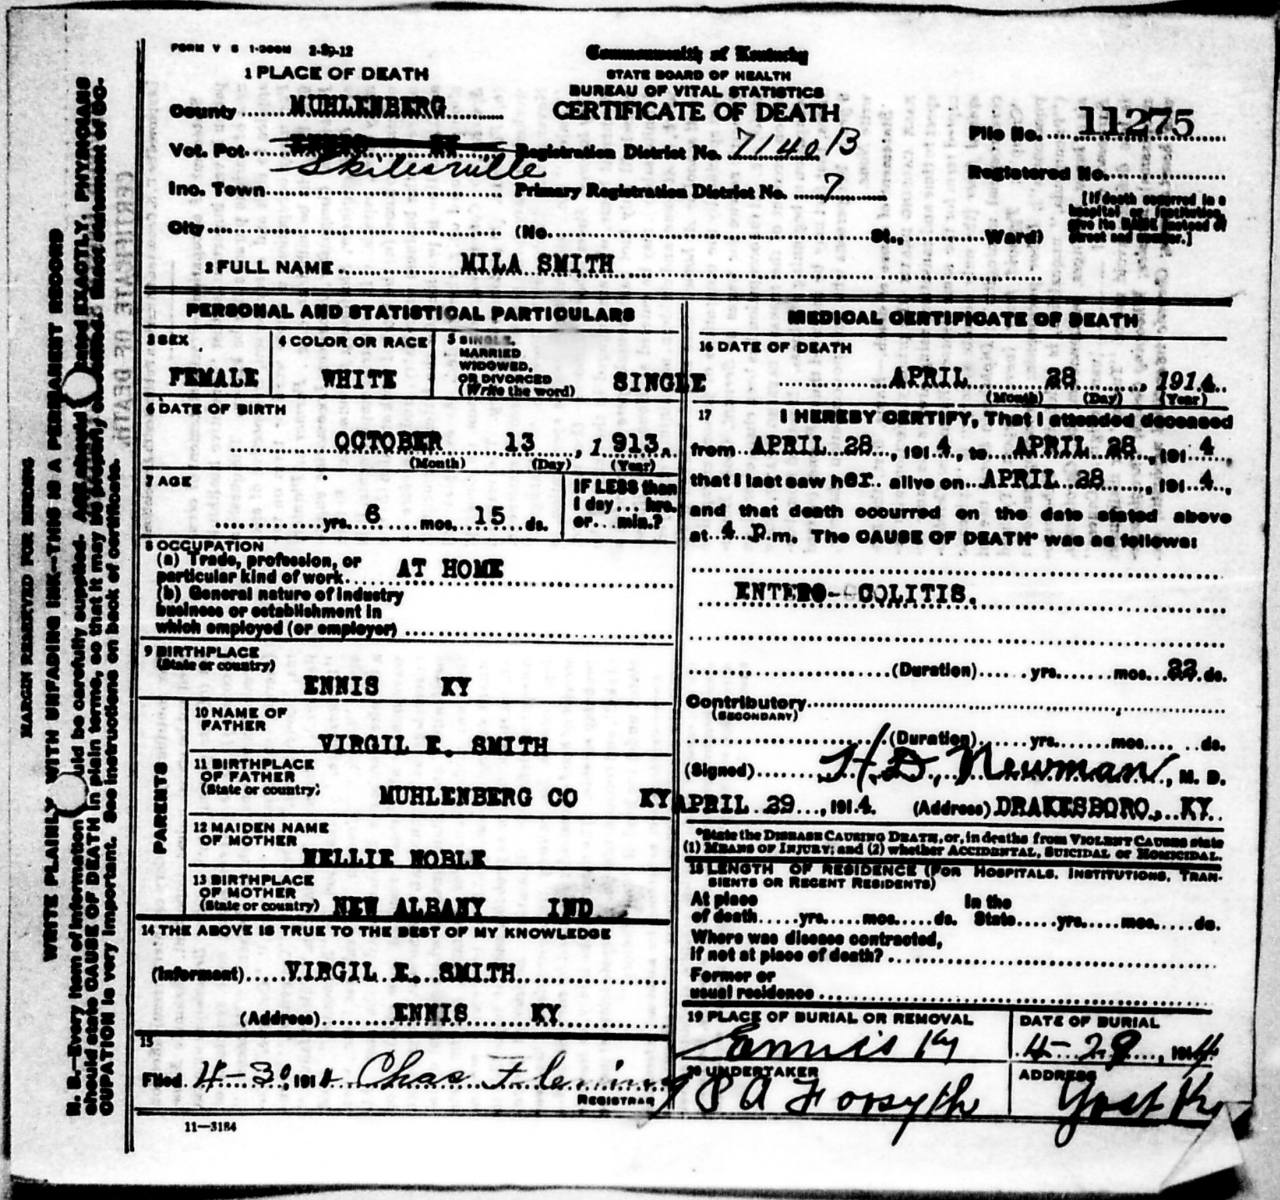 FORM V S 1-300M 2-29-12
Commonwealth of Kentucky
STATE BOARD OF HEALTH
BUREAU OF VITAL STATISTICS
CERTIFICATE OF DEATH
1 PLACE OF DEATH
County MUHLENBERG
File No. 11275
Vot. Pct. ENNIS KY Registration District No. 7140B
Skilesville
Registered No.
Inc. Town Primary Registration District No. 7
[If death occurred in a
hospital or institution,
give its NAME instead of
street and number.]
City (No. St., Ward)
2 FULL NAME MILA SMITH
PERSONAL AND STATISTICAL PARTICULARS
3 SEX
FEMALE
4 COLOR OR RACE
WHITE
5 SINGLE,
MARRIED
WIDOWED,
OR DIVORCED
(Write the word) SINGLE
6 DATE OF BIRTH
OCTOBER 13, 1913.
(Month) (Day) (Year)
7 AGE
yrs. 6 mos. 15 ds.
IF LESS than
1 day... hrs.
or... min.?
8 OCCUPATION
(a) Trade, profession, or
particular kind of work. AT HOME
(b) General nature of industry
business or establishment in
which employed (or employer)
9 BIRTHPLACE
(State or country)
ENNIS KY
PARENTS
10 NAME OF
FATHER
VIRGIL E. SMITH
11 BIRTHPLACE
OF FATHER
(State or country)
MUHLENBERG CO KY
12 MAIDEN NAME
OF MOTHER
NELLIE NOBLE
13 BIRTHPLACE
OF MOTHER
(State or country) NEW ALBANY IND
14 THE ABOVE IS TRUE TO THE BEST OF MY KNOWLEDGE
(Informant) VIRGIL E. SMITH
(Address) ENNIS KY
15
Filed 4-30, 1914 Chas Fleming
REGISTRAR
11-3184
MEDICAL CERTIFICATE OF DEATH
16 DATE OF DEATH
APRIL 28, 1914
(Month) (Day) (Year)
17 I HEREBY CERTIFY, That I attended deceased
from APRIL 28, 1914, to APRIL 28, 1914
that I last saw her alive on APRIL 28, 1914,
and that death occurred on the date stated above
at 4 p.m. The CAUSE OF DEATH* was as follows:
ENTERO-COLITIS.
(Duration) yrs. mos. 22 ds.
Contributory
(SECONDARY)
(Duration) yrs. mos. ds.
(Signed) H.D. Newman, M. D.
APRIL 29, 1914. (Address) DRAKESBORO, KY.
*State the DISEASE CAUSING DEATH, or, in deaths from VIOLENT CAUSES state
(1) MEANS OF INJURY; and (2) whether ACCIDENTAL, SUICIDAL or HOMICIDAL.
18 LENGTH OF RESIDENCE (FOR HOSPITALS, INSTITUTIONS, TRAN-
SIENTS OR RECENT RESIDENTS)
At place In the
of death yrs. mos. ds. State yrs. mos. ds.
Where was disease contracted,
if not at place of death?
Former or
usual residence
19 PLACE OF BURIAL OR REMOVAL
Ennis Ky
DATE OF BURIAL
4-29, 1914
20 UNDERTAKER
P A Forsyth
ADDRESS
Yost Ky
MARGIN RESERVED FOR BINDING
WRITE PLAINLY WITH UNFADING INK—THIS IS A PERMANENT RECORD
N. B.—Every item of information should be carefully supplied. AGE should be stated EXACTLY. PHYSICIANS
should state CAUSE OF DEATH in plain terms, so that it may be properly classified. Exact statement of OC-
CUPATION is very important. See instructions on back of certificate.